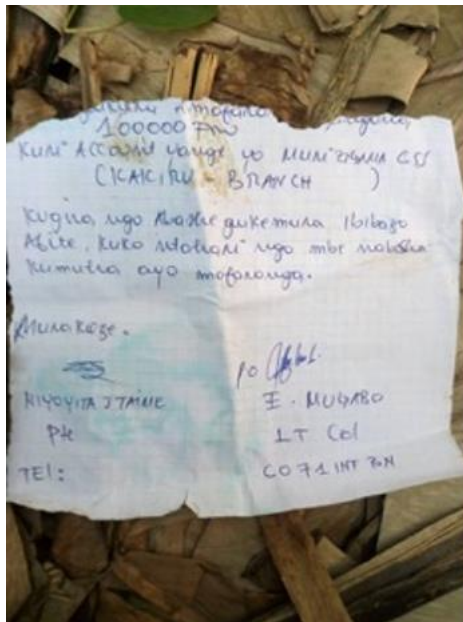 100000 Frw
KURI ACCOUNT yange yo MURI ZIGAMA CSS
(KAKIRU - BRANCH )
Kugira ngo Abashe gukemura Ibibazo
Afite, kuko ntabani ngo mbe nabasha
Kumutra ayo mafaranga.
Murakoze.
PO
NIYOYITA J TAIME
E. MUGABO
Pte
LT Col
TEl:
CO 71 INT BN